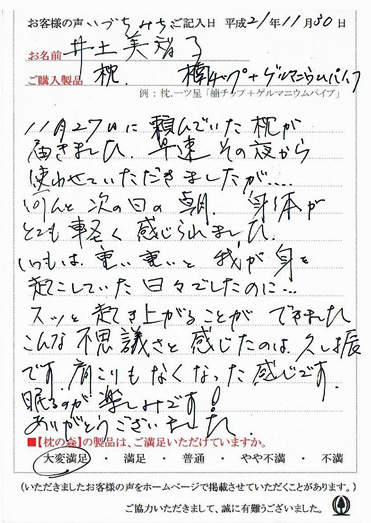 お客様の声 いづちみちこ ご記入日 平成21年11月30日
お名前 井土美智子
ご購入製品 枕. 楠チップ+ゲルマニウムパイプ
例:枕.一ツ星「楠チップ+ゲルマニウムパイプ」
11月27日に頼んでいた枕が
届きました. 早速その夜から
使わせていただきましたが....
何んと次の日の朝. 身体が
とても軽く感じられました.
いつもは、重い重いと 我が身を
起こしていた日々でしたのに...
スッと起き上がることができました
こんな不思議さと感じたのは、久し振
です. 肩こりもなくなった感じです.
眠るのが楽しみです!
ありがとうございました.
■【枕の森】の製品は、ご満足いただけていますか。
大変満足 ・ 満足 ・ 普通 ・ やや不満 ・ 不満
(いただきましたお客様の声をホームページで掲載させていただくことがあります。)
ご協力いただきまして、誠に有難うございました。